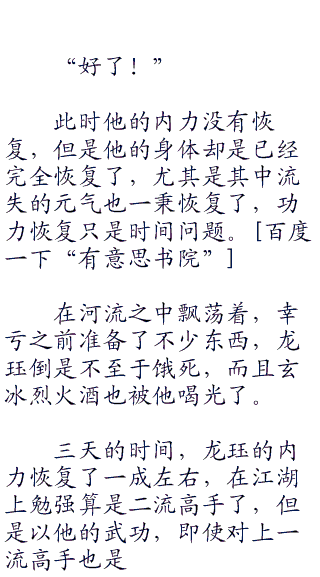 “好了！”
此时他的内力没有恢
复，但是他的身体却是已经
完全恢复了，尤其是其中流
失的元气也一秉恢复了，功
力恢复只是时间问题。[百度
一下“有意思书院”]
在河流之中飘荡着，幸
亏之前准备了不少东西，龙
珏倒是不至于饿死，而且玄
冰烈火酒也被他喝光了。
三天的时间，龙珏的内
力恢复了一成左右，在江湖
上勉强算是二流高手了，但
是以他的武功，即使对上一
流高手也是